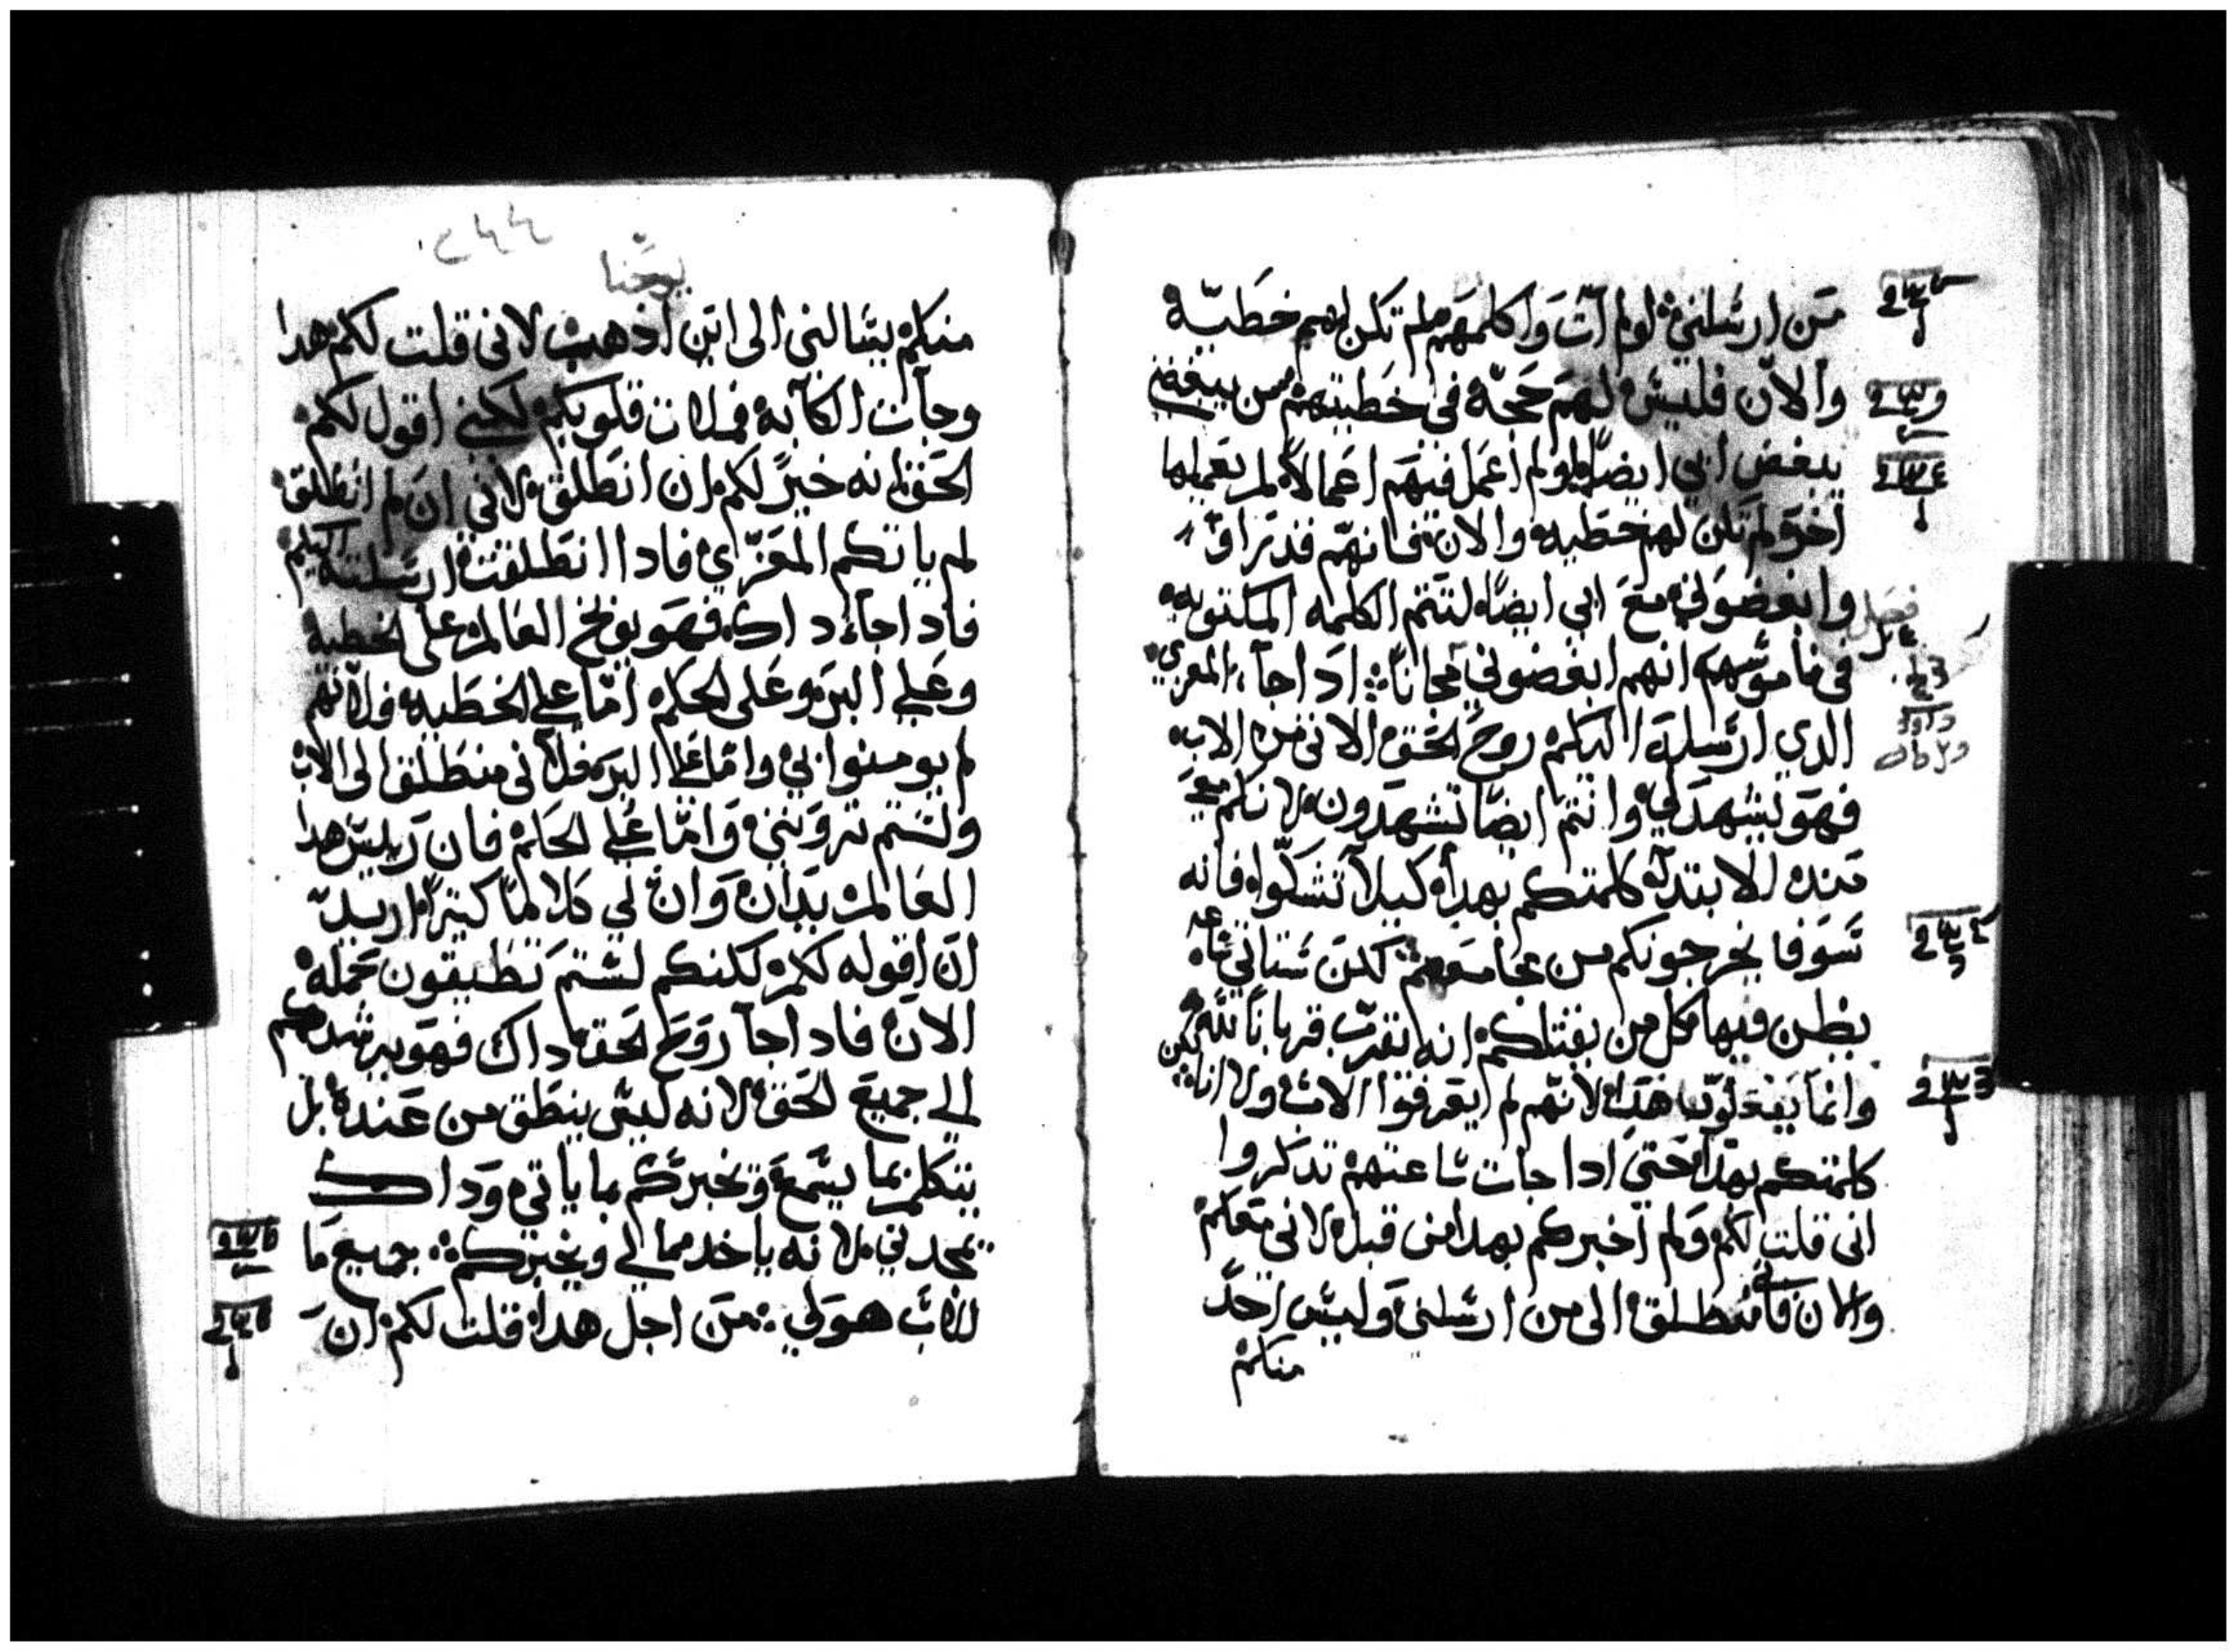 من ارسلني لو لم آت واكلمهم لم تكن لهم خطيه
والان فليس لهم حجه في خطيتهم من يبغضني
يبغض ابي ايضا لو لم اعمل فيهم اعمالا لم يعملها
اخر لم تكن لهم خطيه والان فانهم قد راو
وابغضوني مع ابي ايضا لتتم الكلمه المكتوبه
فصل
في ناموسهم انهم ابغضوني مجانا اذا جاء المعزي
الدي ارسله اليكم روح الحق الاتي من الاب
فهو يشهد لي وانتم ايضا تشهدون لانكم معي
مند الابتدا كلمتكم بهدا كيلا تشكوا فانه
سوف يخرجونكم من مجامعهم لكن ستاتي ساعه
يظن فيها كل من يقتلكم انه يقرب قربانا لله
وانما يفعلون هدا لانهم لم يعرفوا الاب ولا انا
كلمتكم بهدا حتى ادا جات ساعتهم تدكروا
اني قلت لكم ولم اخبركم بهدا من قبل لاني معكم
والان فاني منطلق الى من ارسلني وليس احد
منكم
٢٤٤
يوحنا
منكم يسالني الى اين اذهب لاني قلت لكم هدا
وجآت الكآبه فملات قلوبكم لكني اقول لكم
الحق انه خير لكم ان انطلق لاني ان لم انطلق
لم ياتكم المعزي فادا انطلقت ارسلته اليكم
فادا جاء داك فهو يوبخ العالم على الخطيه
وعلى البر وعلى الحكم اما على الخطيه فلانهم
لم يومنوا بي واما على البر فلاني منطلق الى الاب
ولستم تروني واما على الحكم فان رييس هدا
العالم يدان وان لي كلاما كتيرا اريد
ان اقوله لكم لكنكم لستم تطيقون حمله
الان فادا جآ روح الحق داك فهو يرشدكم
الى جميع الحق لانه ليس ينطق من عنده بل
يتكلم بما يسمع ويخبركم بما ياتي وداك
يمجدني لانه ياخد مما لي ويخبركم جميع ما
للاب هو لي من اجل هدا قلت لكم ان